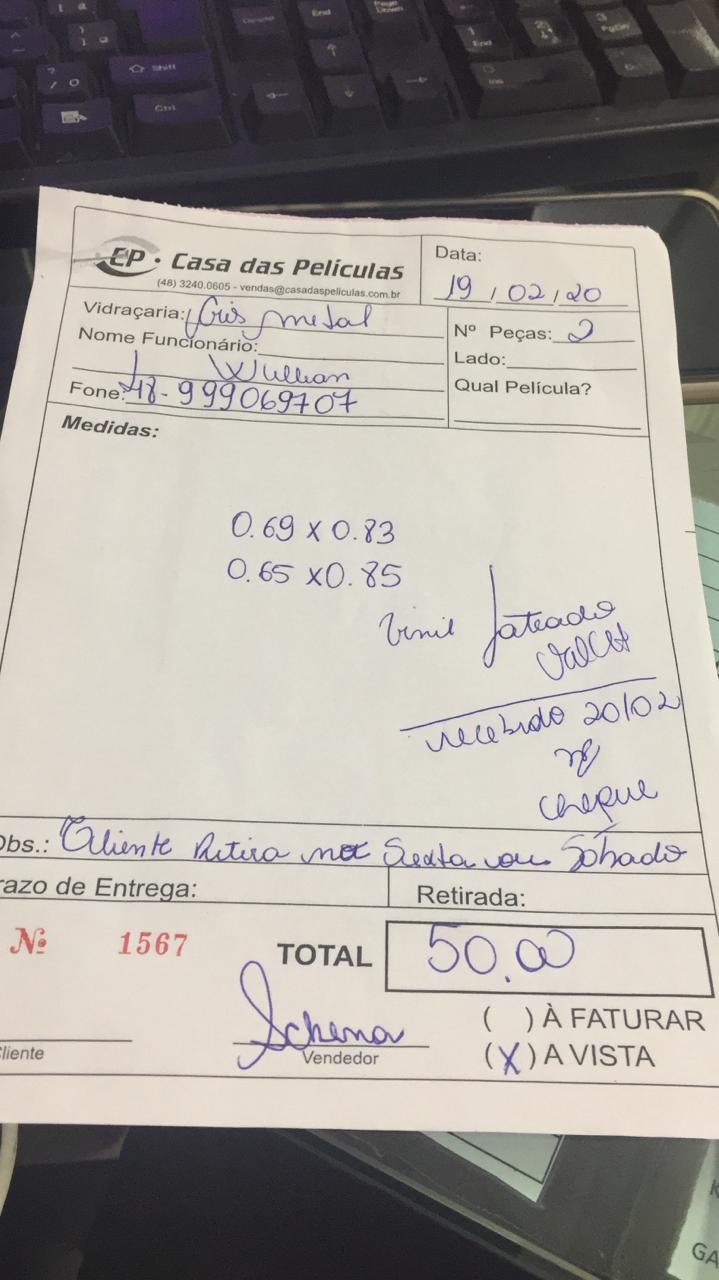 EP · Casa das Películas
(48) 3240.0605 - vendas@casadaspeliculas.com.br
Data:
19 / 02 / 20
Vidraçaria: Cris metal
Nome Funcionário:
Wullian
Fone: 48-999069707
Nº Peças: 2
Lado:
Qual Película?
Medidas:
0.69 x 0.83
0.65 x 0.85
Vinil Jateado
recebido 20/02
cheque
Obs.: Cliente Retira na Sexta ou Sábado
razo de Entrega:
Retirada:
Nº 1567
TOTAL 50,00
( ) À FATURAR
Schena
Cliente
Vendedor
(X) A VISTA
Shift
Ctrl
End
End